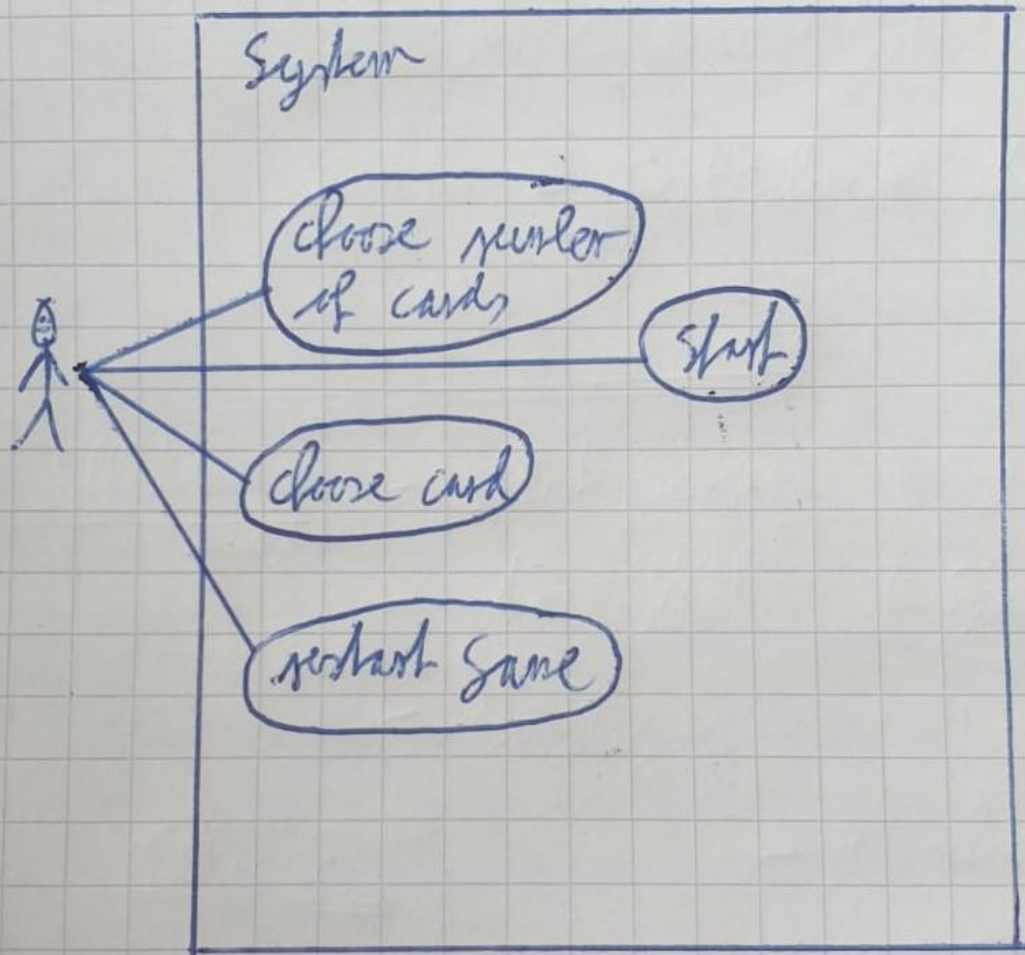 System
choose number
of cards
Start
choose card
restart game